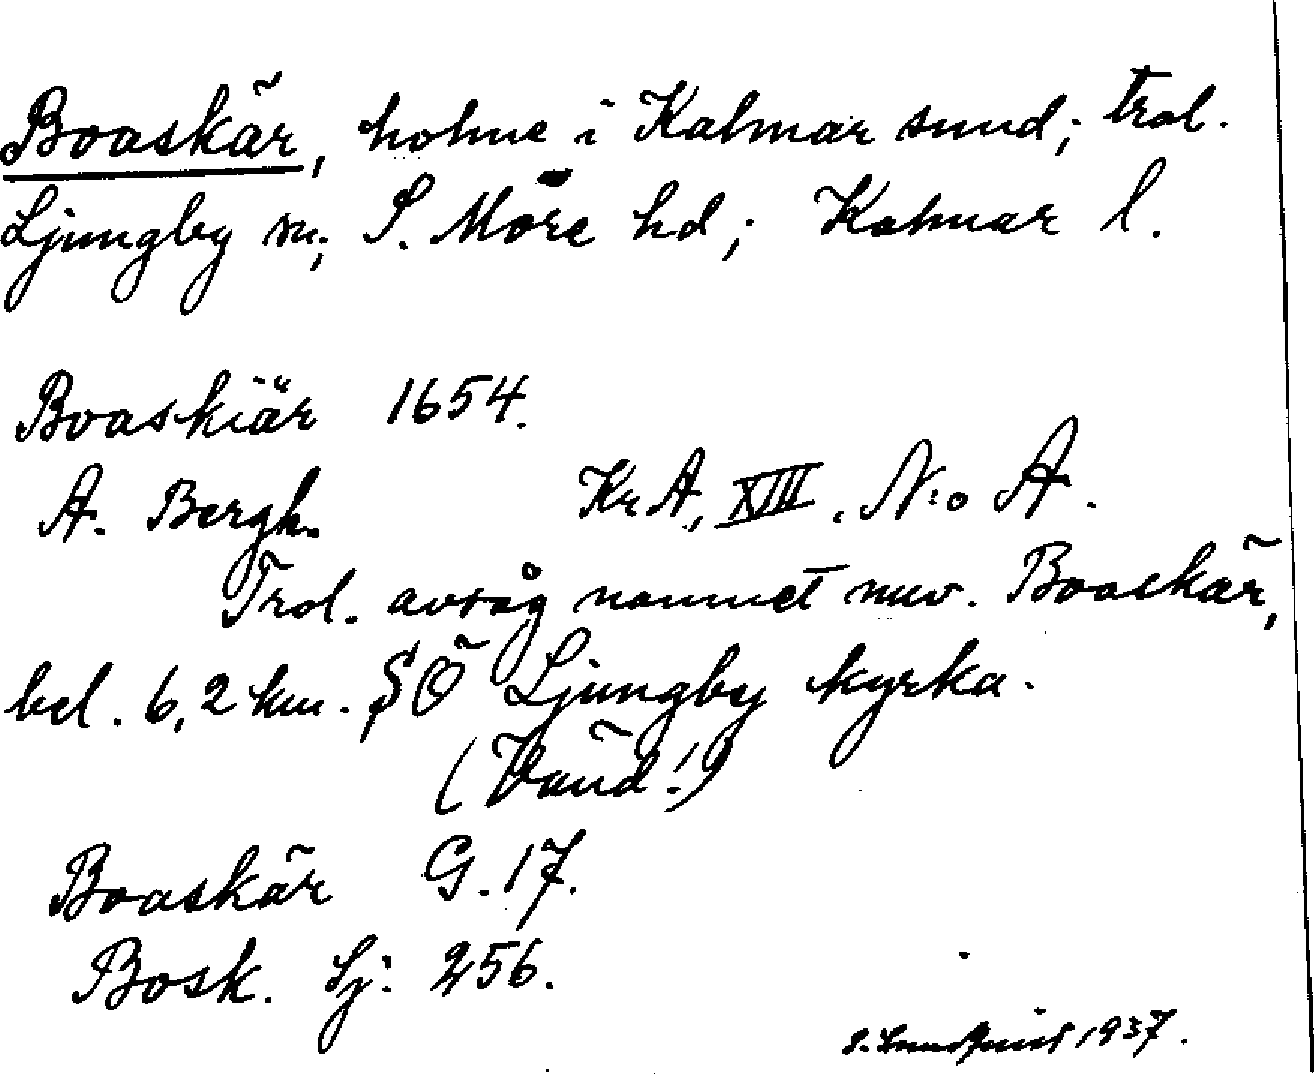 Boaskär, holme i Kalmar sund; trol.
Ljungby sn; S. Möre hd; Kalmar l.
Boaskiär 1654.
A. Bergh. Kr A, XIII. N:o A.
Trol. avsåg namnet nuv. Boaskär,
bel. 6,2 km. SÖ Ljungby kyrka.
(Vänd!)
Boaskär G. 17.
Bosk. Lj: 256.
S. Lundquist 1937.